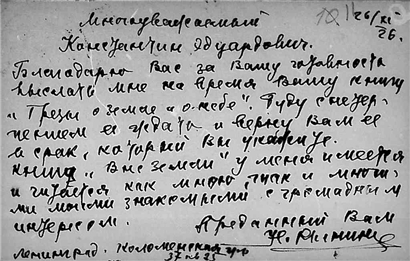 10 26/XI
26.
Многоуважаемый
Константин Эдуардович.
Благодарю Вас за Вашу готовность
выслать мне на время Вашу книгу
"Грезы о земле и о небе". Буду с нетер-
пением ее ждать и верну Вам ее
в срок, который Вы укажете.
Книга "Вне земли" у меня имеется
и читается как мною, так и многи-
ми моими знакомыми с громадным
интересом. Преданный Вам
Н. Рынин
Ленинград. Коломенская ул.
37 кв 25